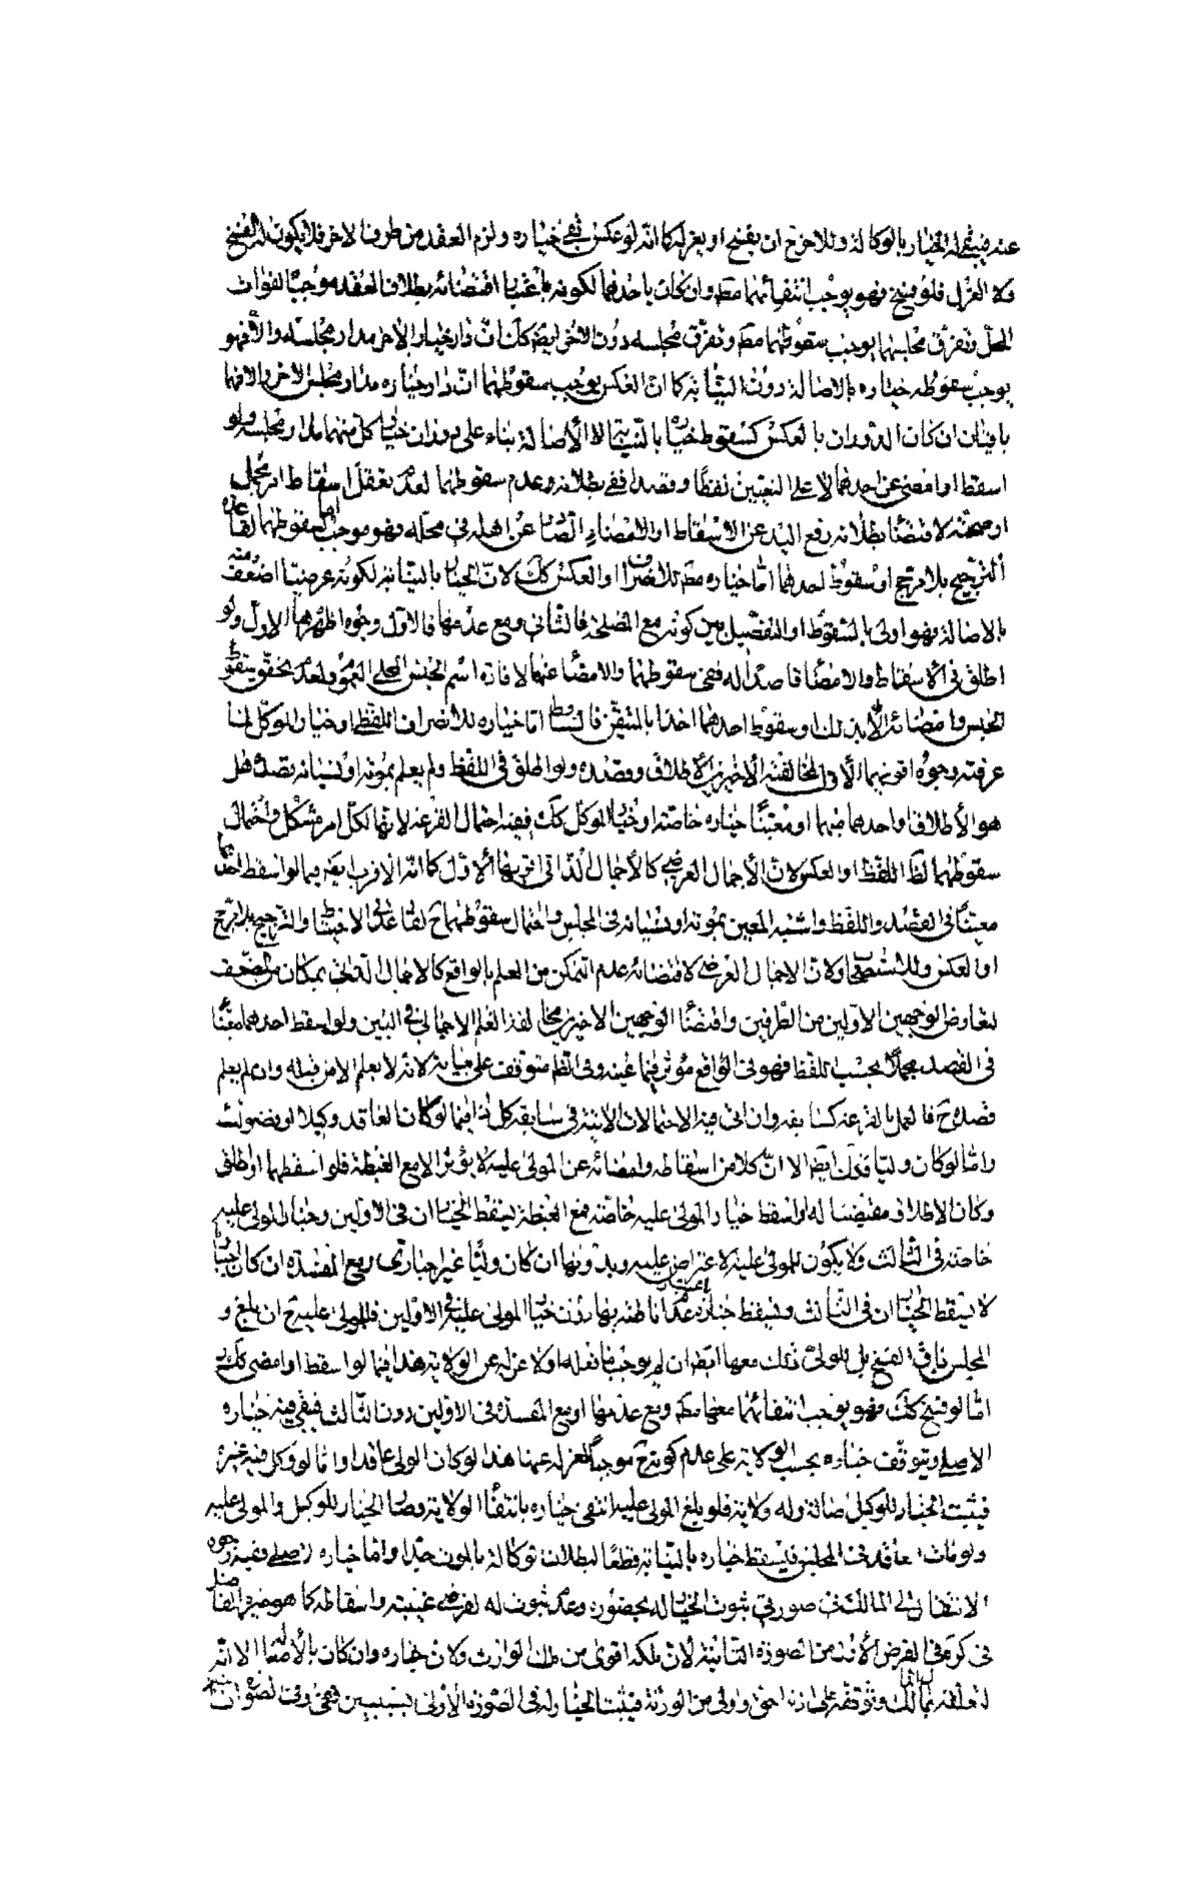 عنه فيبقى له الخيار بالوكالة وللاخر ح ان يفسخ او يعزله كما انه لو عكس نفى خياره ولزم العقد من طرف الاخر فلا يكون له الفسخ
ولا العزل فلو فسخ فهو يوجب انتفائهما مطم وان كان باحدهما لكونه باعتبار اقتضائه بطلان العقد موجبا لفوات
المحل وتفرق مجلسهما يوجب سقوطهما مطم وتفرق مجلسه دون الاخر ايضا كك ان دار خيار الاخر مدار مجلسه والا فهو
يوجب سقوط خياره بالاصالة دون النيابة كما ان العكس يوجب سقوطهما ان دار خياره مدار مجلس الاخر والا فهما
باقيان ان كان الدوران بالعكس كسقوط خياره بالنيابة لا الاصالة بناء على دوران خيار كل منهما مدار مجلسه ولو
اسقط او امضى عن احدهما لا على التعيين لفظا وقصدا ففى بطلانه وعدم سقوطهما لعدم تعقل اسقاط امر مجمل
او صحته لاقتضاء بطلانه رفع اليد عن الاسقاط او الامضاء الصادر عن اهله فى محله فهو موجب اما لسقوطهما لقاعدة
الترجيح بلا مرجح او سقوط احدهما اما خياره مطم للانصراف او العكس كك لان الخيار بالنيابة لكونه عرضيا اضعف منه
بالاصالة فهو اولى بالسقوط او التفصيل بين كونه مع المصلحة فالثانى ومع عدمها فالاول وجوه اظهرها الاول ولو
اطلق فى الاسقاط والامضاء قاصدا له ففى سقوطهما والامضاء عنهما لافادة اسم الجنس المحلى العموم ولعدم تحقق سقوط
الجنس وامضائه الا بذلك او سقوط احدهما اخذا بالمتيقن فالساقط اما خياره للانصراف اللفظى او خيار الموكل لما
عرفته وجوه اقويها الاول لمخالفة الاخيرين الاطلاق وقصده ولو اطلق فى اللفظ ولم يعلم بموته او نسيانه قصده هل
هو الاطلاق او احدهما مبهما او معينا خياره خاصة او خيار الموكل كك ففيه احتمال القرعة لانها لكل امر مشكل واحتمال
سقوطهما لظ اللفظ او العكس لان الاجمال العرضى كالاجمال الذاتى اقربها الاول كما انه الاقرب ايضا فيما لو اسقط احدهما
معينا فى القصد واللفظ واشتبه المعين بموته او نسيانه فى المجلس واحتمال سقوطهما ح لقاعدة الاحتياط والترجيح بلا مرجح
او العكس للاستصحاب ولان الاجمال العرضى لاقتضائه عدم التمكن من العلم بالواقع كالاجمال الذاتى بمكان من الضعف
لتعارض الوجهين الاولين من الطرفين واقتضاء الوجهين الاخيرين مجال لهذا العلم الاجمالى فى البين ولو اسقط احدهما معينا
فى القصد مجملا بحسب اللفظ فهو فى الواقع مؤثر فيما عينه وفى الظ متوقف على بيانه لانه لا يعلم الا من قبله وان لم يعلم
قصده ح فالعمل بالقرعة كسابقه وان اتى فيه الاحتمالات الاتية فى سابقه كل هذا فيما لو كان العاقد وكيلا او فضوليا
واما لو كان وليا فكذلك ايضا الا ان كلا من اسقاطه وامضائه عن المولى عليه لا يؤثر الا مع الغبطة فلو اسقطهما او اطلق
وكان الاطلاق مقتضيا له او اسقط خيار المولى عليه خاصة فمع الغبطة يسقط الخياران فى الاولين وخيار المولى عليه
خاصة فى الثالث ولا يكون للمولى عليه الاعتراض عليه وبدونها ان كان وليا غير اجبارى ومع المفسدة ان كان اجباريا
لا يسقط الخياران فى الثالث ويسقط خياره مع اناطته بها دون خيار المولى عليه فى الاولين فللمولى عليه ح ان بلغ و
المجلس باق الفسخ بل للولى ذلك معها ايضا ان لم يوجب ما فعله اولا عزله عن الولاية هذا فيما لو اسقط او امضى كك
اما لو فسخ كك فهو يوجب انتفائهما معها مطم ومع عدمها او مع المفسدة فى الاولين دون الثالث فيبقى فيه خياره
الاصلى ويتوقف خياره بحسب الولاية على عدم كونه ح موجبا لعزله عنها هذا لو كان الولى عاقدا واما لو وكل فيه غيره
فيثبت الخيار للوكيل اصالة وله ولاية فلو بلغ المولى عليه انتفى خياره بانتفاء الولاية وصار الخيار للوكيل والمولى عليه
ولو مات العاقد فى المجلس فيسقط خياره بالنيابة قطعا لبطلان الوكالة بالموت جدا واما خياره الاصلى ففيه وجوه
الانتقال الى المالك فى صورتى ثبوت الخيار له بحضوره وعدم ثبوت له لفرض غيبته واسقاطه كما هو خيرة الفاضل
فى كره فى الفرض الاول من الصورة الثانية لان ملكه اقوى من ملك الوارث وكان خياره وان كان بالاصالة الا انه
لتعلقه بمال المالك وتوقفه على اذنه احق واولى من الورثة فيثبت الخيار له فى الصورة الاولى بسببين ففى وقت لصوات